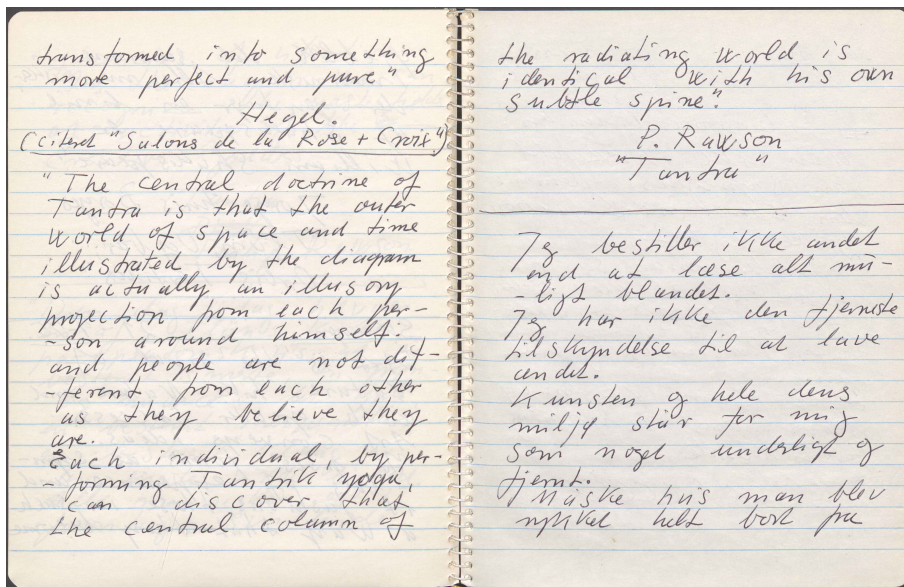 transformed into something
more perfect and pure"
Hegel.
(citeret "Salons de la Rose + Croix")
"The central doctrine of
Tantra is that the outer
world of space and time
illustrated by the diagram
is actually an illusory
projection from each per-
-son around himself:
and people are not dif-
-ferent from each other
as they believe they
are.
Each individual, by per-
-forming Tantrik yoga,
can discover that
the central column of
the radiating world is
identical with his own
subtle spine".
P. Rawson
"Tantra"
Jeg bestiller ikke andet
end at læse alt mu-
-ligt blandet.
Jeg har ikke den fjerneste
tilskyndelse til at lave
andet.
Kunsten og hele dens
miljø står for mig
som noget underligt og
fjernt.
Måske hvis man blev
rykket helt bort fra